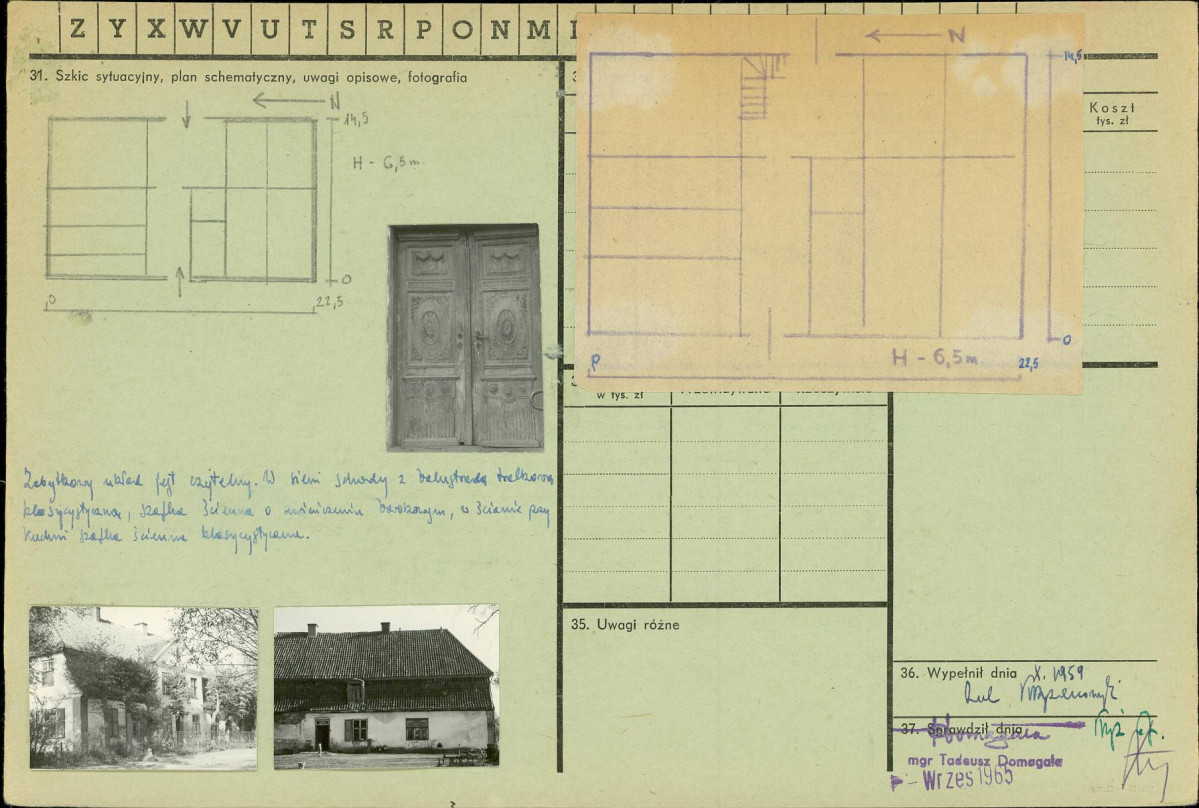 Z Y X W V U T S R P O N M
31. Szkic sytuacyjny, plan schematyczny, uwagi opisowe, fotografia
N
14,5
H - 6,5m
0
0
22,5
Zabytkowy układ jest czytelny. W sieni schody z balustradą tralkową
klasycystyczną, szafka ścienna o zwieńczeniu barokowym, w ścianie przy
kuchni szafka ścienna klasycystyczna.
N
14,5
0
H - 6,5m
0
22,5
Koszt
tys. zł
w tys. zł
35. Uwagi różne
36. Wypełnił dnia X. 1959
37. Sprawdził dnia
mgr Tadeusz Domagała
- Wrzes 1965